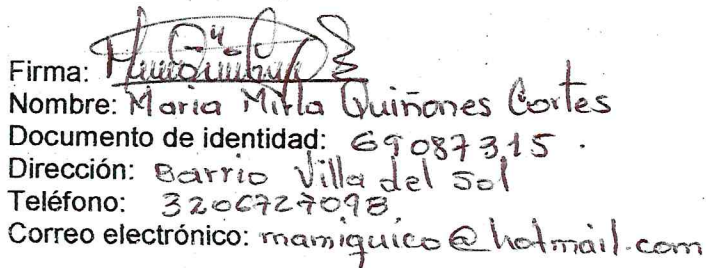 Firma:
Nombre: Maria Mirla Quiñones Cortes
Documento de identidad: 69087315.
Dirección: Barrio Villa del Sol
Teléfono: 3206727098
Correo electrónico: mamiquico@hotmail.com